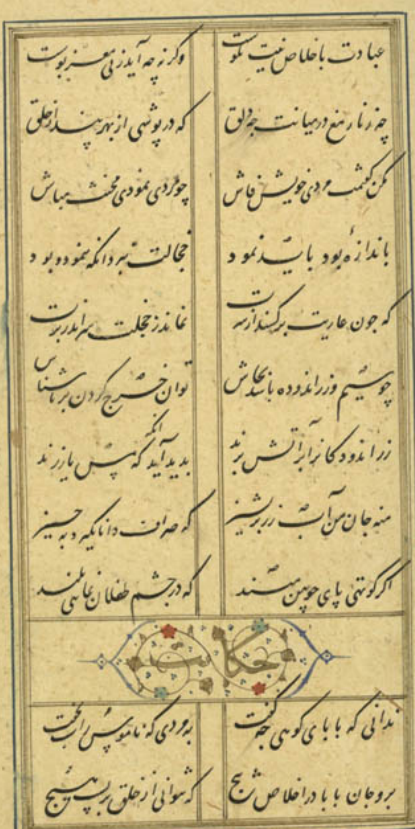 عبادت باخلاص نیت نکوست وکرنه چه آید ز بی مغز پوست
چه زنار مغ در میانت چه دلق که در پوشی از بهر پندار خلق
مکن گفتمت مردی خویش فاش چو مردی نمودی مخنث مباش
باندازهٔ بود باید نمود خجالت نبرد آنکه ننمود و بود
که چون عاریت برکشند از سرت نماند ز خجلت سر اندر برت
چو سیم وزر اندوده باشد نحاس توان خرج کردن بر ناشناس
زر اندودکانرا بآتش برند بدید آید آنکه که مس یا زرند
منه جان من آب زر بر پشیز که صراف دانا نگیرد به چیز
اگر کوتهی پای چوبین مبند که در چشم طفلان نمایی بلند
حکایت
ندانی که بابای کوهی چه گفت بمردی که ناموس را شب نخفت
برو جان بابا در اخلاص پیچ که نتوانی از خلق بر بست هیچ